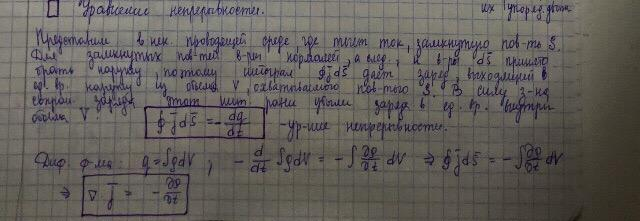 Уравнение непрерывности. их упоряд. движ
Представим в нек. проводящей среде, где течет ток, замкнутую пов-ть S.
Для замкнутых пов-тей в-ры нормалей, а след., и в-ры dS̄ принято
брать наружу, поэтому интеграл ∮j̄dS̄ дает заряд, выходящий в
ед. вр. наружу из объема V, охватываемого пов-тью S. В силу з-на
сохран. заряда этот инт. равен убыли заряда в ед. вр. внутри
объема V. ∮j̄dS̄ = -dq/dt - ур-ние непрерывности.
Диф. ф-ма: q = ∫ρdV ; -d/dt ∫ρdV = -∫∂ρ/∂t dV ⇒ ∮j̄dS̄ = -∫∂ρ/∂t dV
⇒ ∇ j̄ = -∂ρ/∂t